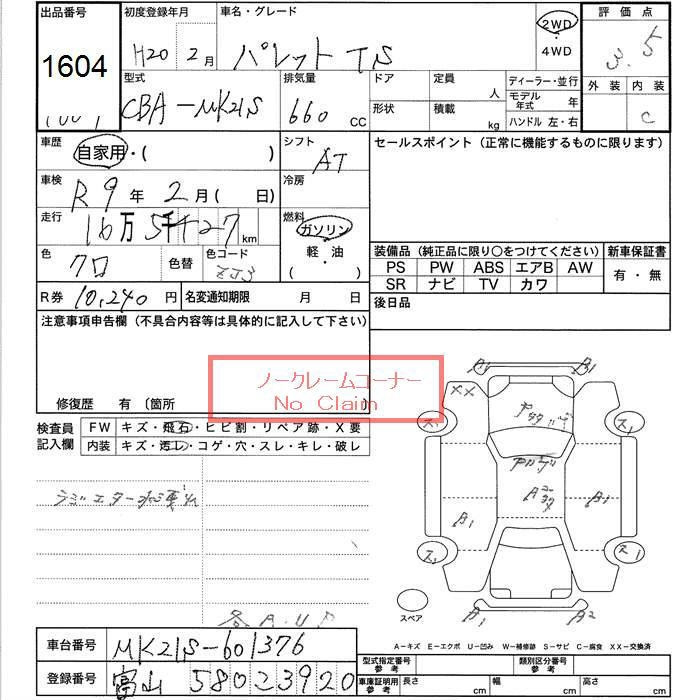 出品番号 初度登録年月 車名・グレード 評価点
1604 H20 2月 パレット TS 2WD・4WD 3.5
型式 排気量 ドア 定員 ディーラー・並行 外装 内装
CBA-MK21S 660 CC 人 モデル年式 年 C
形状 積載 kg ハンドル 左・右
車歴 シフト セールスポイント (正常に機能するものに限ります)
自家用・( ) AT
車検 冷房
R9年 2月( 日)
走行 燃料
16万5千 27 km ガソリン・軽・油 ( )
色 色替 色コード 装備品 (純正品に限り○をつけてください) 新車保証書
クロ ZJ3 PS PW ABS エアB AW 有・無
SR ナビ TV カワ
R券 10,240円 名変通知期限 月 日 後日品
注意事項申告欄 (不具合内容等は具体的に記入して下さい)
ノークレームコーナー
No Claim
修復歴 有 〔箇所
検査員記入欄 FW キズ・飛石・ヒビ割・リペア跡・X要
内装 キズ・汚レ・コゲ・穴・スレ・キレ・破レ
A1 B1
XX
ラジエター
B1 B1
各A.U.P
スペア
B1 A2
A-キズ E-エクボ U-凹み W-補修跡 S-サビ C-腐食 XX-交換済
車台番号 MK21S-601376
型式指定番号 参考 類別区分番号 参考
登録番号 富山 580 こ 3920
車庫証明用 参考 長さ cm 幅 cm 高さ cm